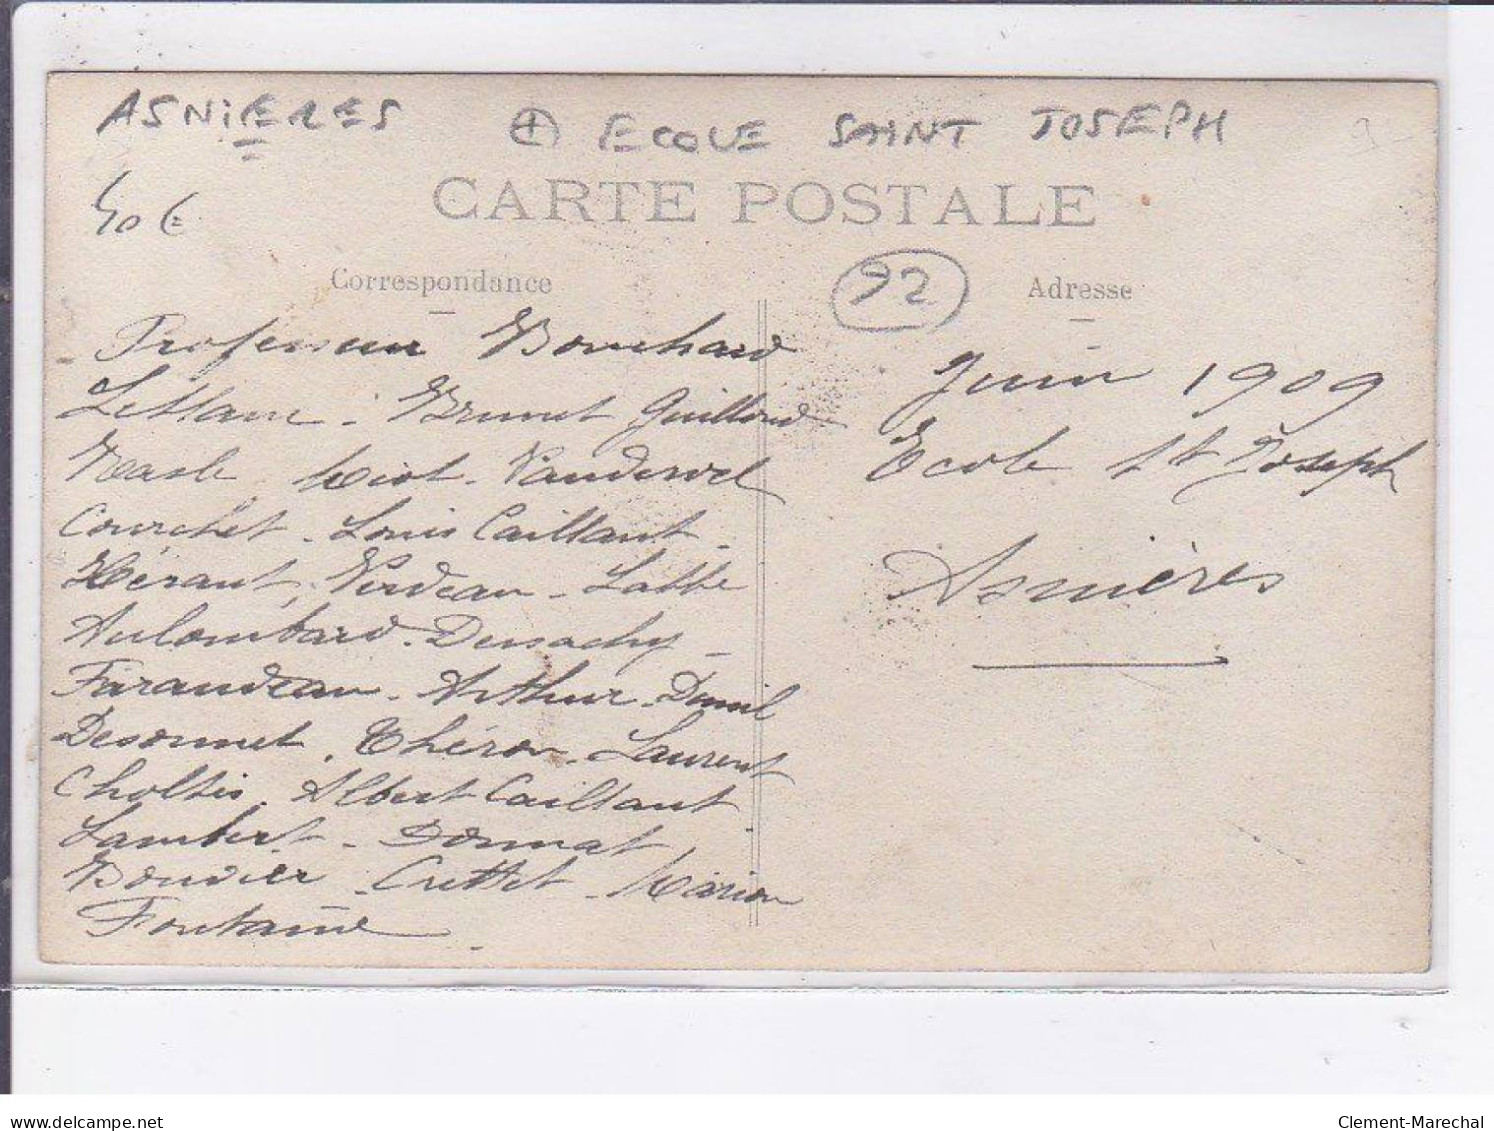 ASNIERES ⊕ ECOLE SAINT JOSEPH
40 €
CARTE POSTALE
92
Correspondance
Adresse
Professeur Bouchard
Leblanc - Brunet Guilloud
Masle Miot - Vandervel
Courchet - Louis Caillaut -
Héraut, Verdeau - Labbe
Aulombard - Dessachy -
Farandeau - Arthur - Dumil
Desonnet - Théron - Laurent
Choltis - Albert Caillaut
Lambert - Donnat,
Bouvier - Crettet - Marion
Fontaine
Juin 1909
Ecole St Joseph
Asnières
www.delcampe.net
Clement-Marechal